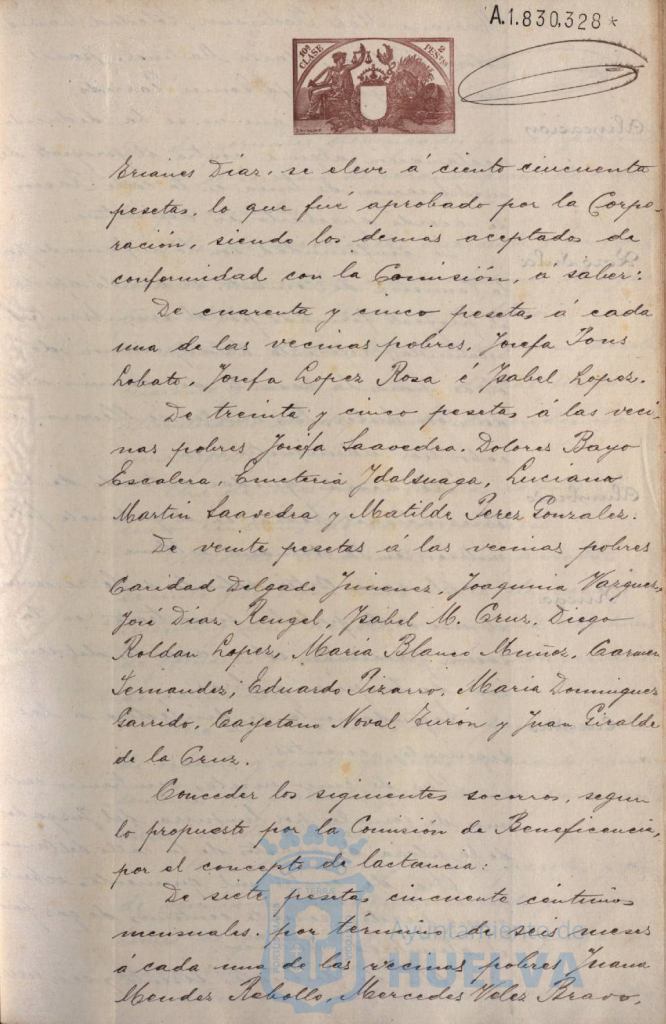 A.1.830,328 *
10ª CLASE
2 PESTAS
Erianes Díaz, se eleve á ciento cincuenta
pesetas, lo que fué aprobado por la Corpo-
ración, siendo los demás aceptados de
conformidad con la Comisión, a saber:
De cuarenta y cinco pesetas á cada
una de las vecinas pobres, Josefa Pons
Lobato, Josefa Lopez Rosa é Isabel Lopez.
De treinta y cinco pesetas á las veci-
nas pobres Josefa Saavedra, Dolores Bayo
Escalera, Emeteria Luciana
Martin Saavedra y Matilde Perez Gonzalez.
De veinte pesetas á las vecinas pobres
Caridad Delgado Jimenez, Joaquina Vazquez,
José Diaz Rengel, Isabel M. Cruz, Diego
Roldan Lopez, María Blanco Muñoz, Carmen
Fernandez, Eduardo Pizarro, María Dominguez
Garrido, Cayetano Noval Zurón y Juan Giralde
de la Cruz.
Conceder los siguientes socorros, segun
lo propuesto por la Comisión de Beneficencia,
por el concepto de lactancia:
De siete pesetas cincuenta céntimos
mensuales, por término de seis meses
á cada una de las vecinas pobres Juana
Mendez Rebollo, Mercedes Velez Bravo,
Ayuntamiento de
HUELVA